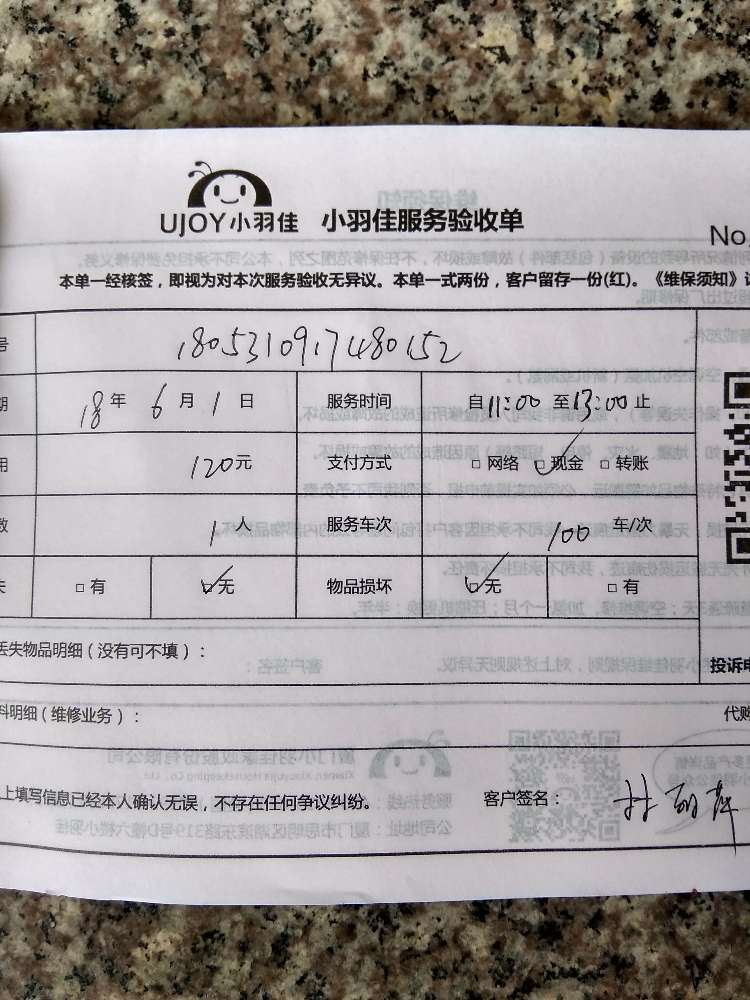 UJOY小羽佳 小羽佳服务验收单
No.
本单一经核签，即视为对本次服务验收无异议。本单一式两份，客户留存一份(红)。《维保须知》
号 1805310917480152
期 18年 6月 1日 服务时间 自11:00至13:00止
用 120元 支付方式 □网络 ☑现金 □转账
数 1人 服务车次 100 车/次
失 □有 ☑无 物品损坏 ☑无 □有
丢失物品明细（没有可不填）： 投诉电
料明细（维修业务）： 代购
上填写信息已经本人确认无误，不存在任何争议纠纷。 客户签名：